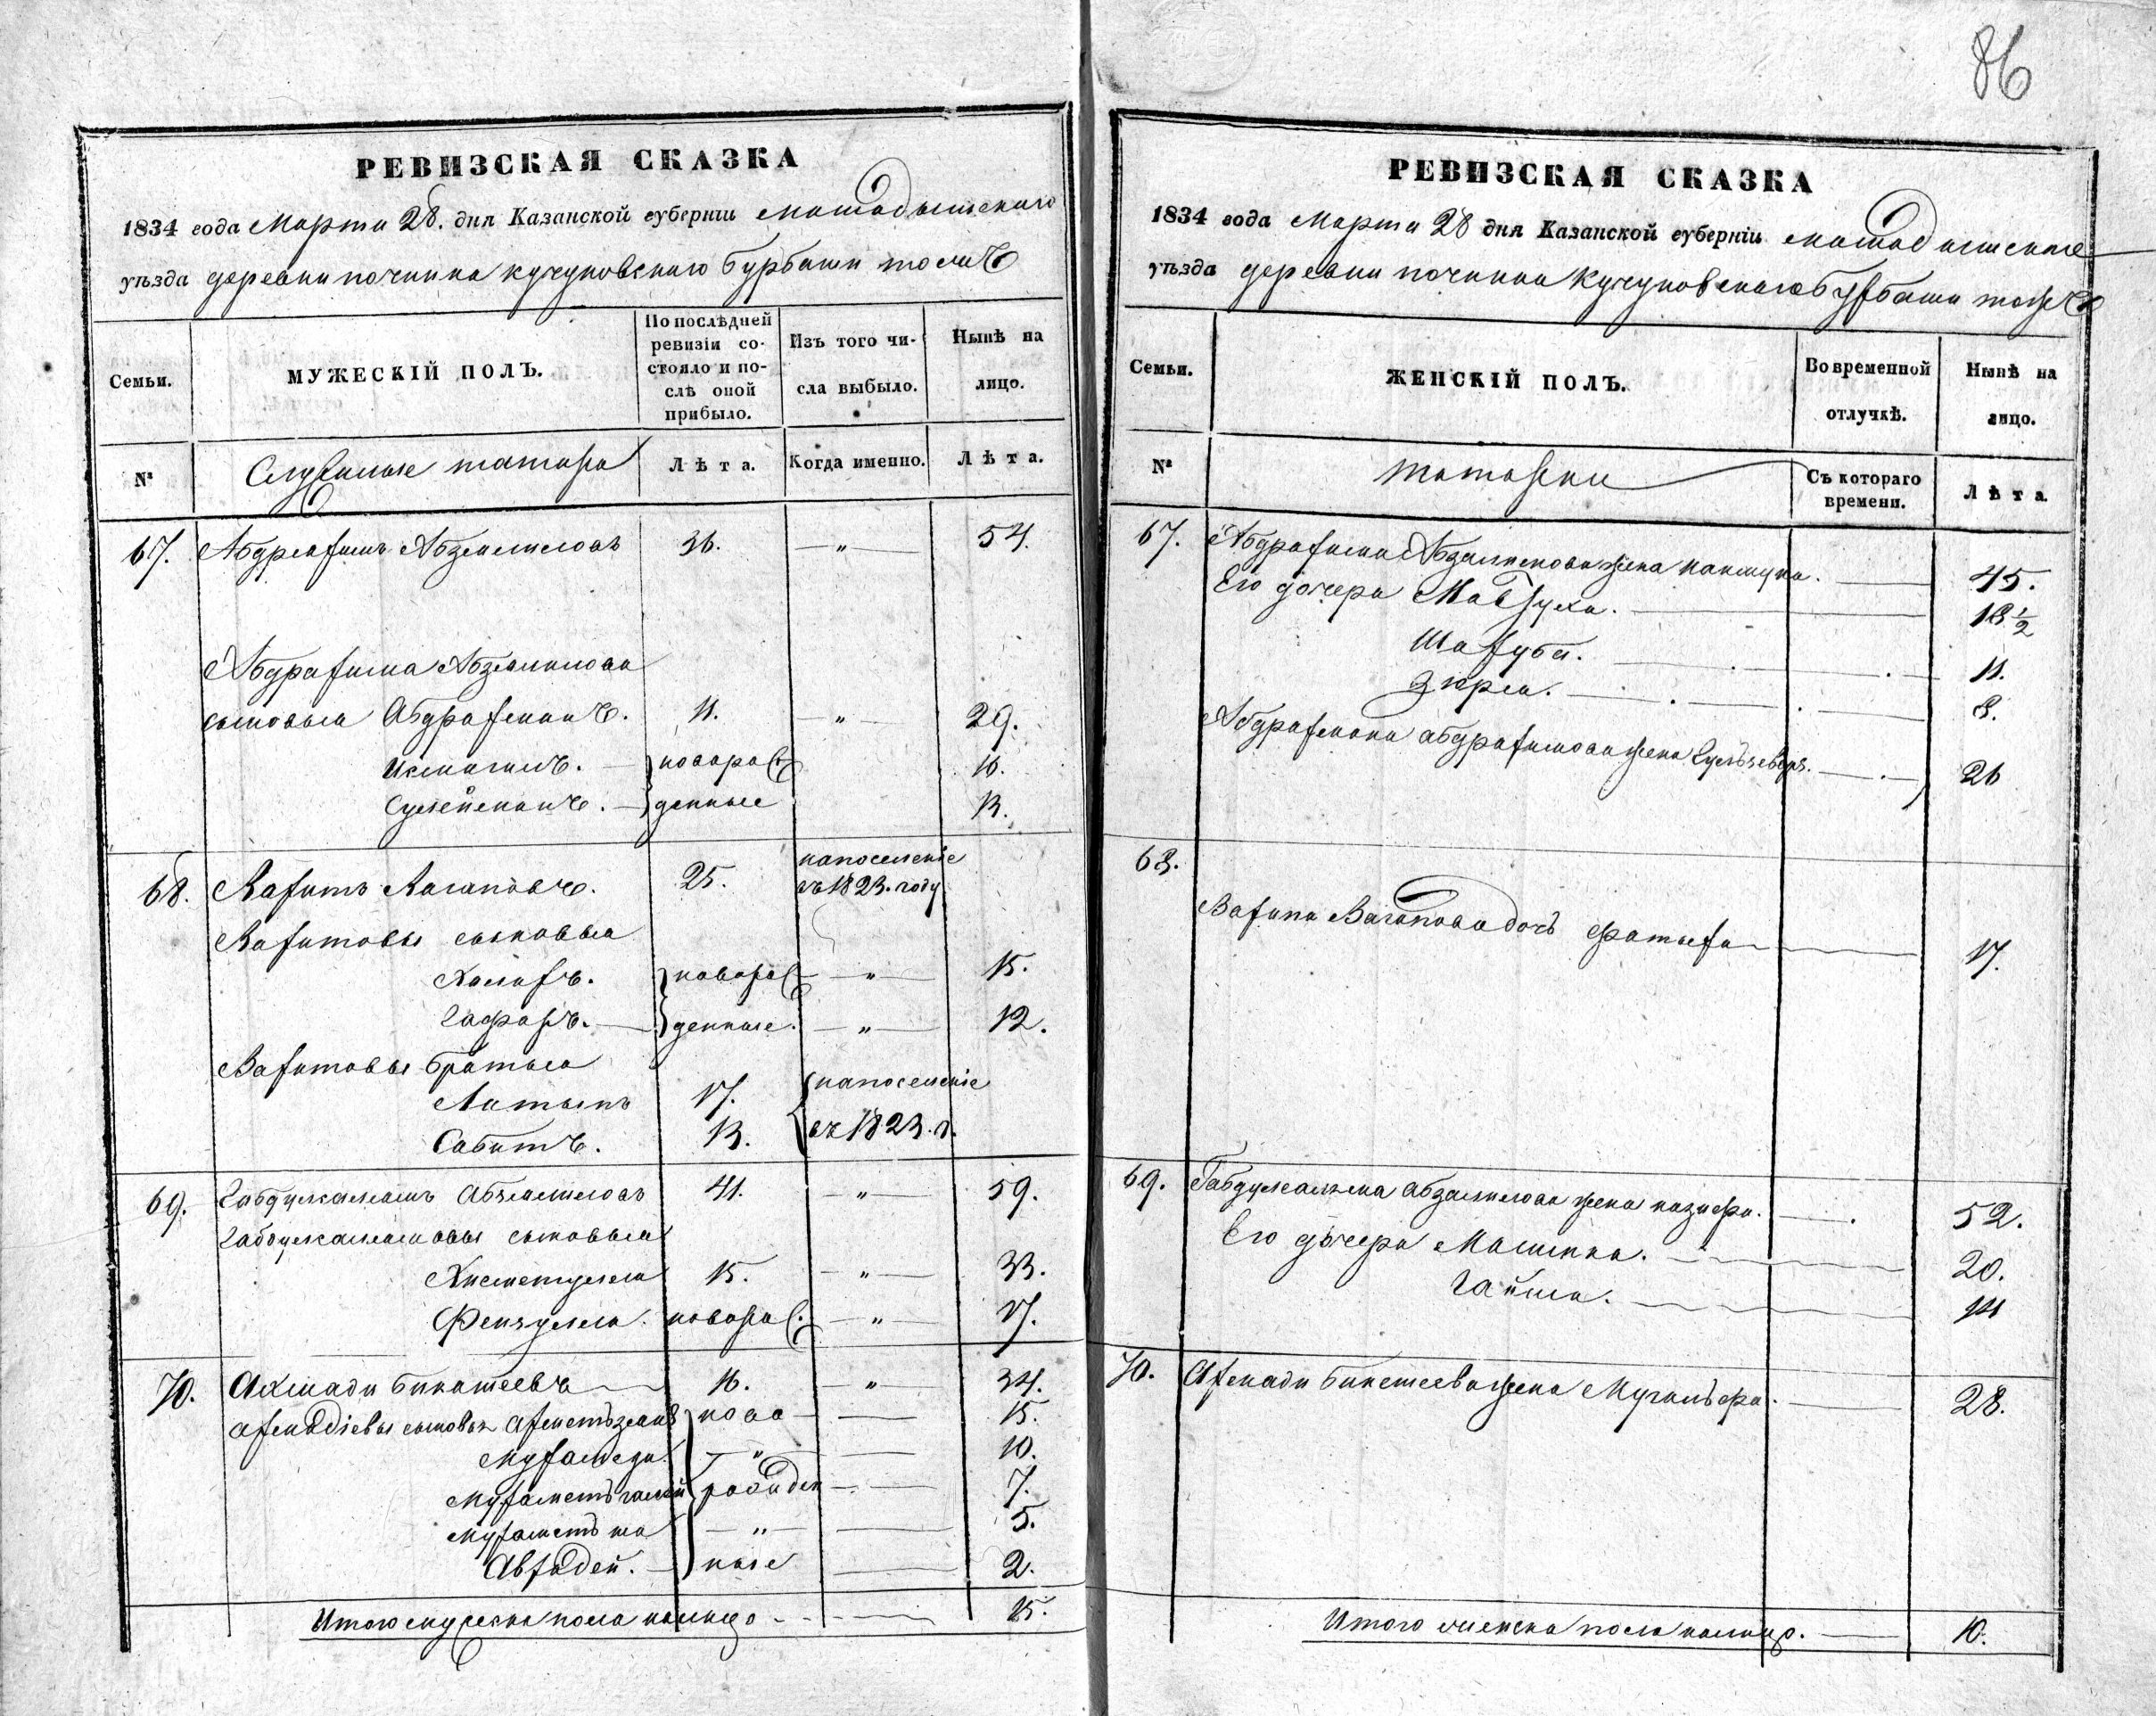 86
РЕВИЗСКАЯ СКАЗКА
1834 года Марта 28. дня Казанской губерніи мамадышскаго
уѣзда деревни починка кучуковскаго Бурбаши тожъ
Семьи.
МУЖЕСКІЙ ПОЛЪ.
По послѣдней ревизіи состояло и послѣ оной прибыло.
Изъ того числа выбыло.
Нынѣ на лицо.
№
Служилые татара
Лѣта.
Когда именно.
Лѣта.
67. Абдрахимъ Абзелиловъ 36. — " — 54.
Абдрахима Абзелилова
сыновья Абдрахманъ. 11. — " — 29.
Исмагилъ. — новорож 16.
Сулейманъ. — денные 13.
68. Вахитъ Вагаповъ. 25. на поселеніе въ 1823. году
Вахитовы сыновья
Халитъ. новорож — " — 15.
Гафаръ. — денные. — " — 12.
Вахитовы братья
Латыпъ 17. на поселеніе
Сабитъ. 13. въ 1823. г.
69. Габдулсалямъ Абзелиловъ 41. — " — 59.
Габдулсалямовы сыновья
Хисметулла 15. — " — 33.
Фейзулла. новорож. — " — 17.
70. Ахмади Бикметевъ — 16. — " — 34.
Ахмадіевы сыновья Ахметьзянъ ново — — 15.
Мухамеди — " — — 10.
Мухаметьгалей рожден — — 7.
Мухаметьша — " — — 5.
ные — 2.
Итого мужеска пола налицо - - - 15.
РЕВИЗСКАЯ СКАЗКА
1834 года Марта 28 дня Казанской губерніи мамадышскаго
уѣзда деревни починка Кучуковскаго Бурбаши тожъ
Семьи.
ЖЕНСКІЙ ПОЛЪ.
Во временной отлучкѣ.
Нынѣ на лицо.
№
татарки
Съ котораго времени.
Лѣта.
67. Абдрахима Абзалилова жена — 45.
Его дочери Мабруха. — 18 1/2
Махуба. — 11.
Зюрея. — 8.
Абдрахмана абдрахимова жена — 26
68.
Вахита Вагапова дочь — 17.
69. Габдулсаляма абзалилова жена назифа. — 52.
Его дочери — 20.
Гайша. — 14
70. Ахмади Бикметева жена — 28.
Итого женска пола налицо. — 10.